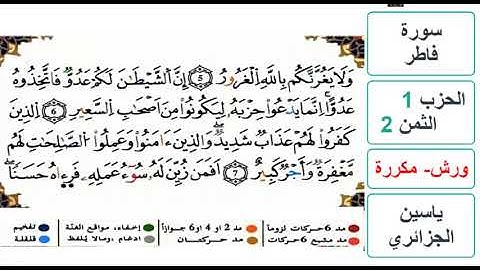 سورة
فاطر
الحزب 1
الثمن 2
ورش- مكررة
ياسين
الجزائري
وَلَا يَغُرَّنَّكُم بِاللَّهِ الْغَرُورُ 5 إِنَّ الشَّيْطَٰنَ لَكُمْ عَدُوٌّ فَاتَّخِذُوهُ
عَدُوًّا إِنَّمَا يَدْعُوا حِزْبَهُ لِيَكُونُوا مِنَ اَصْحَٰبِ السَّعِيرِ 6 الذِينَ
كَفَرُوا لَهُمْ عَذَابٌ شَدِيدٌ وَالذِينَ ءَامَنُوا وَعَمِلُوا الصَّٰلِحَٰتِ لَهُم
مَّغْفِرَةٌ وَأَجْرٌ كَبِيرٌ 7 اَفَمَن زُيِّنَ لَهُ سُوءُ عَمَلِهِ فَرَءَاهُ حَسَنًا
مد 6 حركات لزوماً مد 2 او 4 او 6 جوازاً إخفاء، مواقع الغنّة تفخيم
مد مشبع 6 حركات مد حركتان ادغام، ومالا يلفظ قلقلة